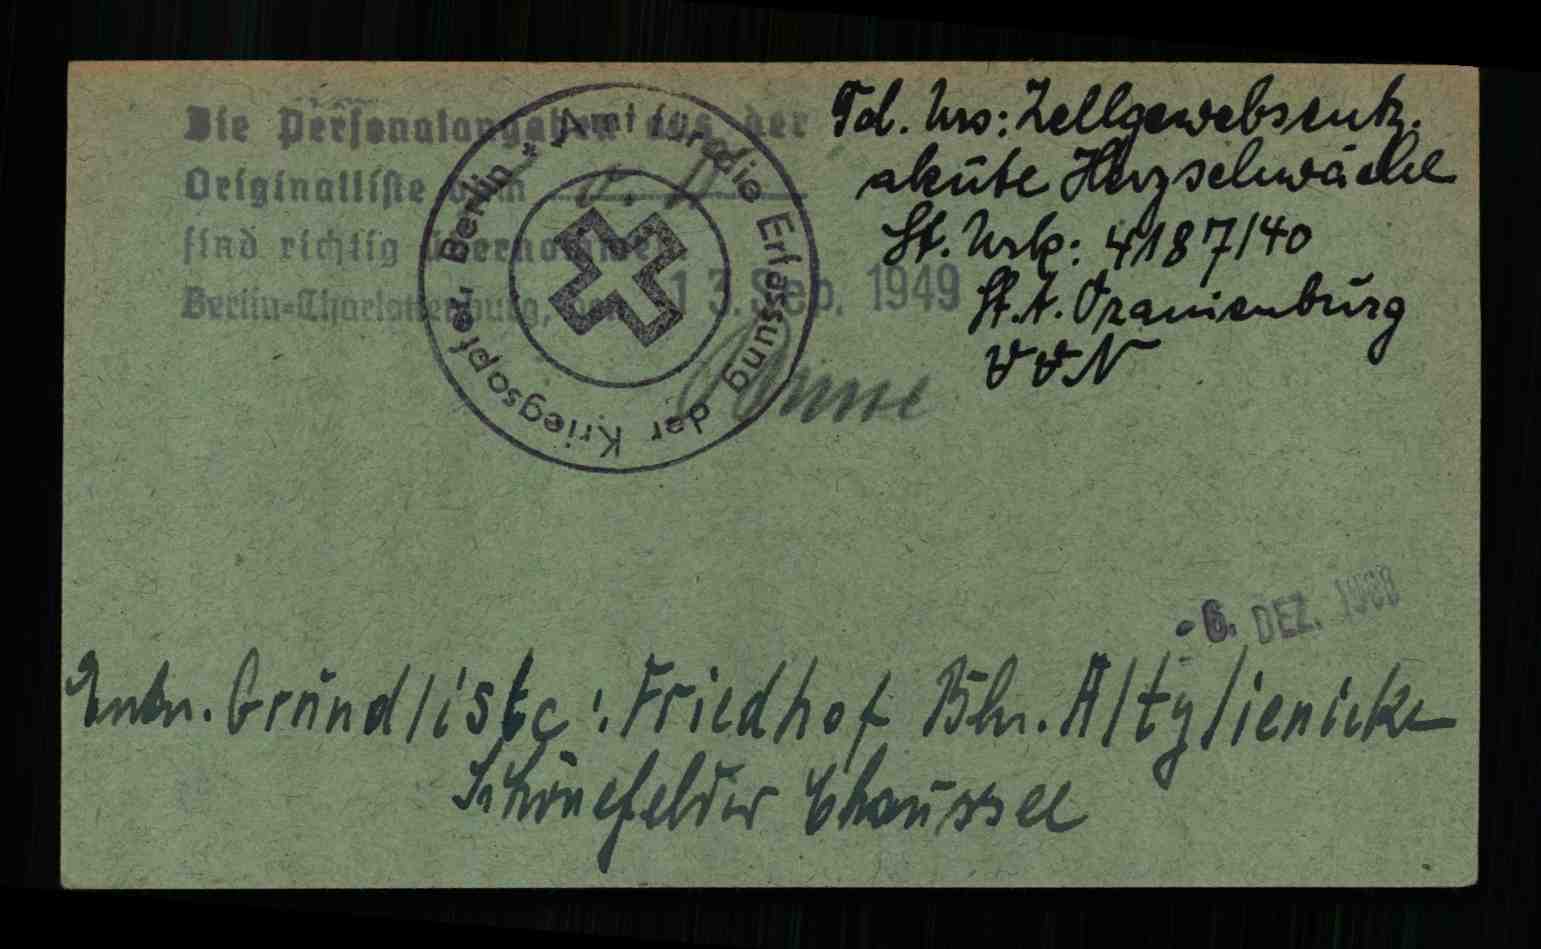 Die Personalangaben aus der
Originalliste vom
sind richtig übernommen.
Berlin-Charlottenburg, den 13. Sep. 1949
Amt für die Erfassung der Kriegsopfer, Berlin *
Tod. Urs: Zellgewebsentz.
akute Herzschwäche
St. Urk: 4187/40
St. A. Oranienburg
VVN
- 6. DEZ.
Entn. Grundliste: Friedhof Bln. Altglienicke
Schönefelder Chaussee